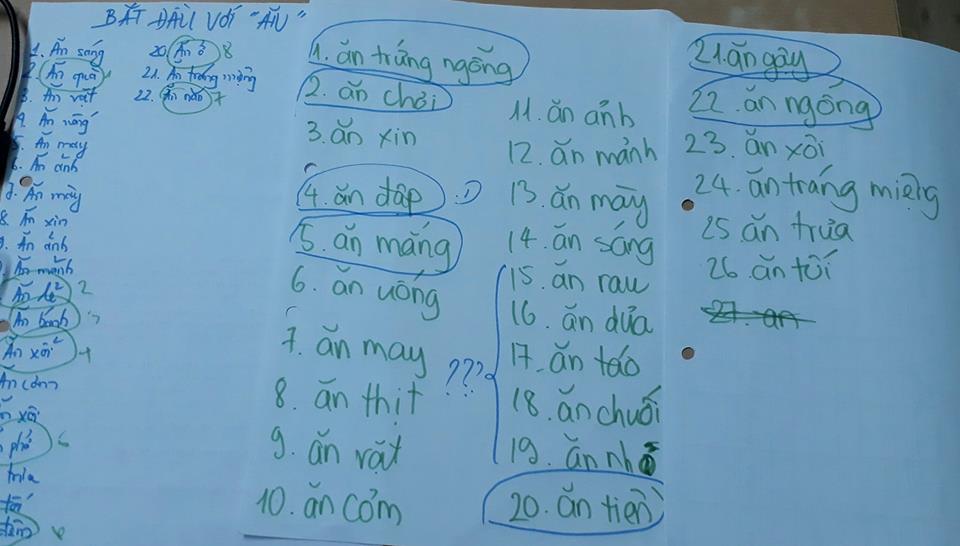 BẮT ĐẦU VỚI "ĂN"
1. Ăn sáng
2. Ăn quà
3. Ăn vặt
4. Ăn uống
5. Ăn may
6. Ăn ảnh
7. Ăn mày
8. Ăn xin
9. Ăn ảnh
Ăn mảnh
Ăn dè 2
Ăn bánh
Ăn xổi
Ăn cơm
Ăn xôi
phở 6
trưa
tối
đêm
20. Ăn ở 8
21. Ăn tráng miệng
22. Ăn não 7
1. ăn trứng ngỗng
2. ăn chơi
3. ăn xin
4. ăn đập :D
5. ăn mắng
6. ăn uống
7. ăn may
8. ăn thịt
9. ăn vặt
10. ăn cơm
11. ăn ảnh
12. ăn mảnh
13. ăn mày
14. ăn sáng
???
15. ăn rau
16. ăn dưa
17. ăn táo
18. ăn chuối
19. ăn nho
20. ăn tiền
21. ăn gậy
22. ăn ngỗng
23. ăn xôi
24. ăn tráng miệng
25. ăn trưa
26. ăn tối
27. ăn